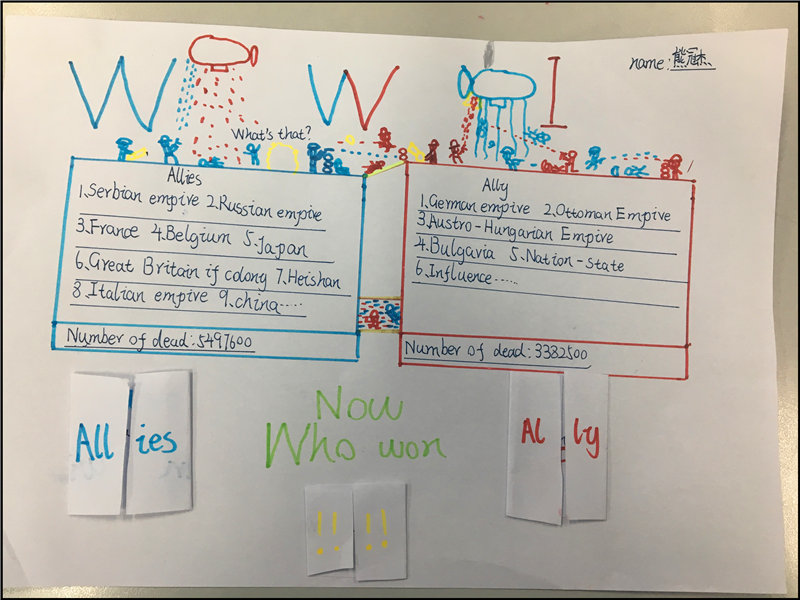 W W I
name: 熊冠杰
What's that?
Allies
1.Serbian empire 2.Russian empire
3.France 4.Belgium 5.Japan
6.Great Britain if colony 7.Heishan
8.Italian empire 9.china.....
Number of dead:5497600
Ally
1.German empire 2.Ottoman Empire
3.Austro-Hungarian Empire
4.Bulgavia 5.Nation-state
6.Influence.....
Number of dead:3382500
Allies
Now
Who won
Ally
!! !!